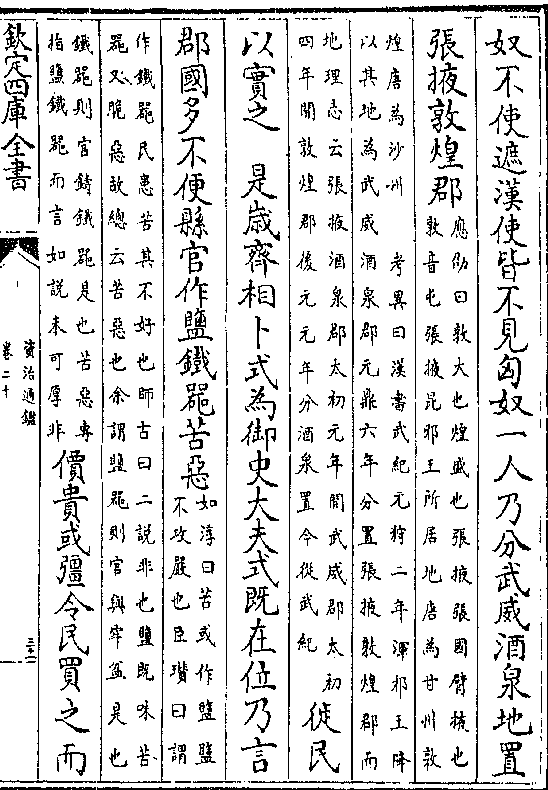 奴不使遮漢使皆不見匈奴一人乃分武威酒泉地置
張掖敦煌郡
應劭曰敦大也煌盛也張掖張國臂掖也
敦音屯張掖昆邪王所居地唐為甘州敦
煌唐為沙州 考異曰漢書武紀元狩二年渾邪王降
以其地為武威 酒泉郡元鼎六年分置張掖敦煌郡而
地理志云張掖酒泉郡太初元年開武威郡太初
四年開敦煌郡後元元年分酒泉置今從武紀
徙民
以實之 是歲齊相卜式為御史大夫式既在位乃言
郡國多不便縣官作鹽鐵器苦惡
如淳曰苦或作盬盬
不攻嚴也臣瓚曰謂
作鐵器民患苦其不好也師古曰二說非也鹽既味苦
器又脆惡故總云苦惡也余謂鹽器則官與牢盆是也
鐵器則官鑄鐵器是也苦惡專
指鹽鐵器而言如說未可厚非
價貴或彊令民買之而
欽定四庫全書
資治通鑑
卷二十